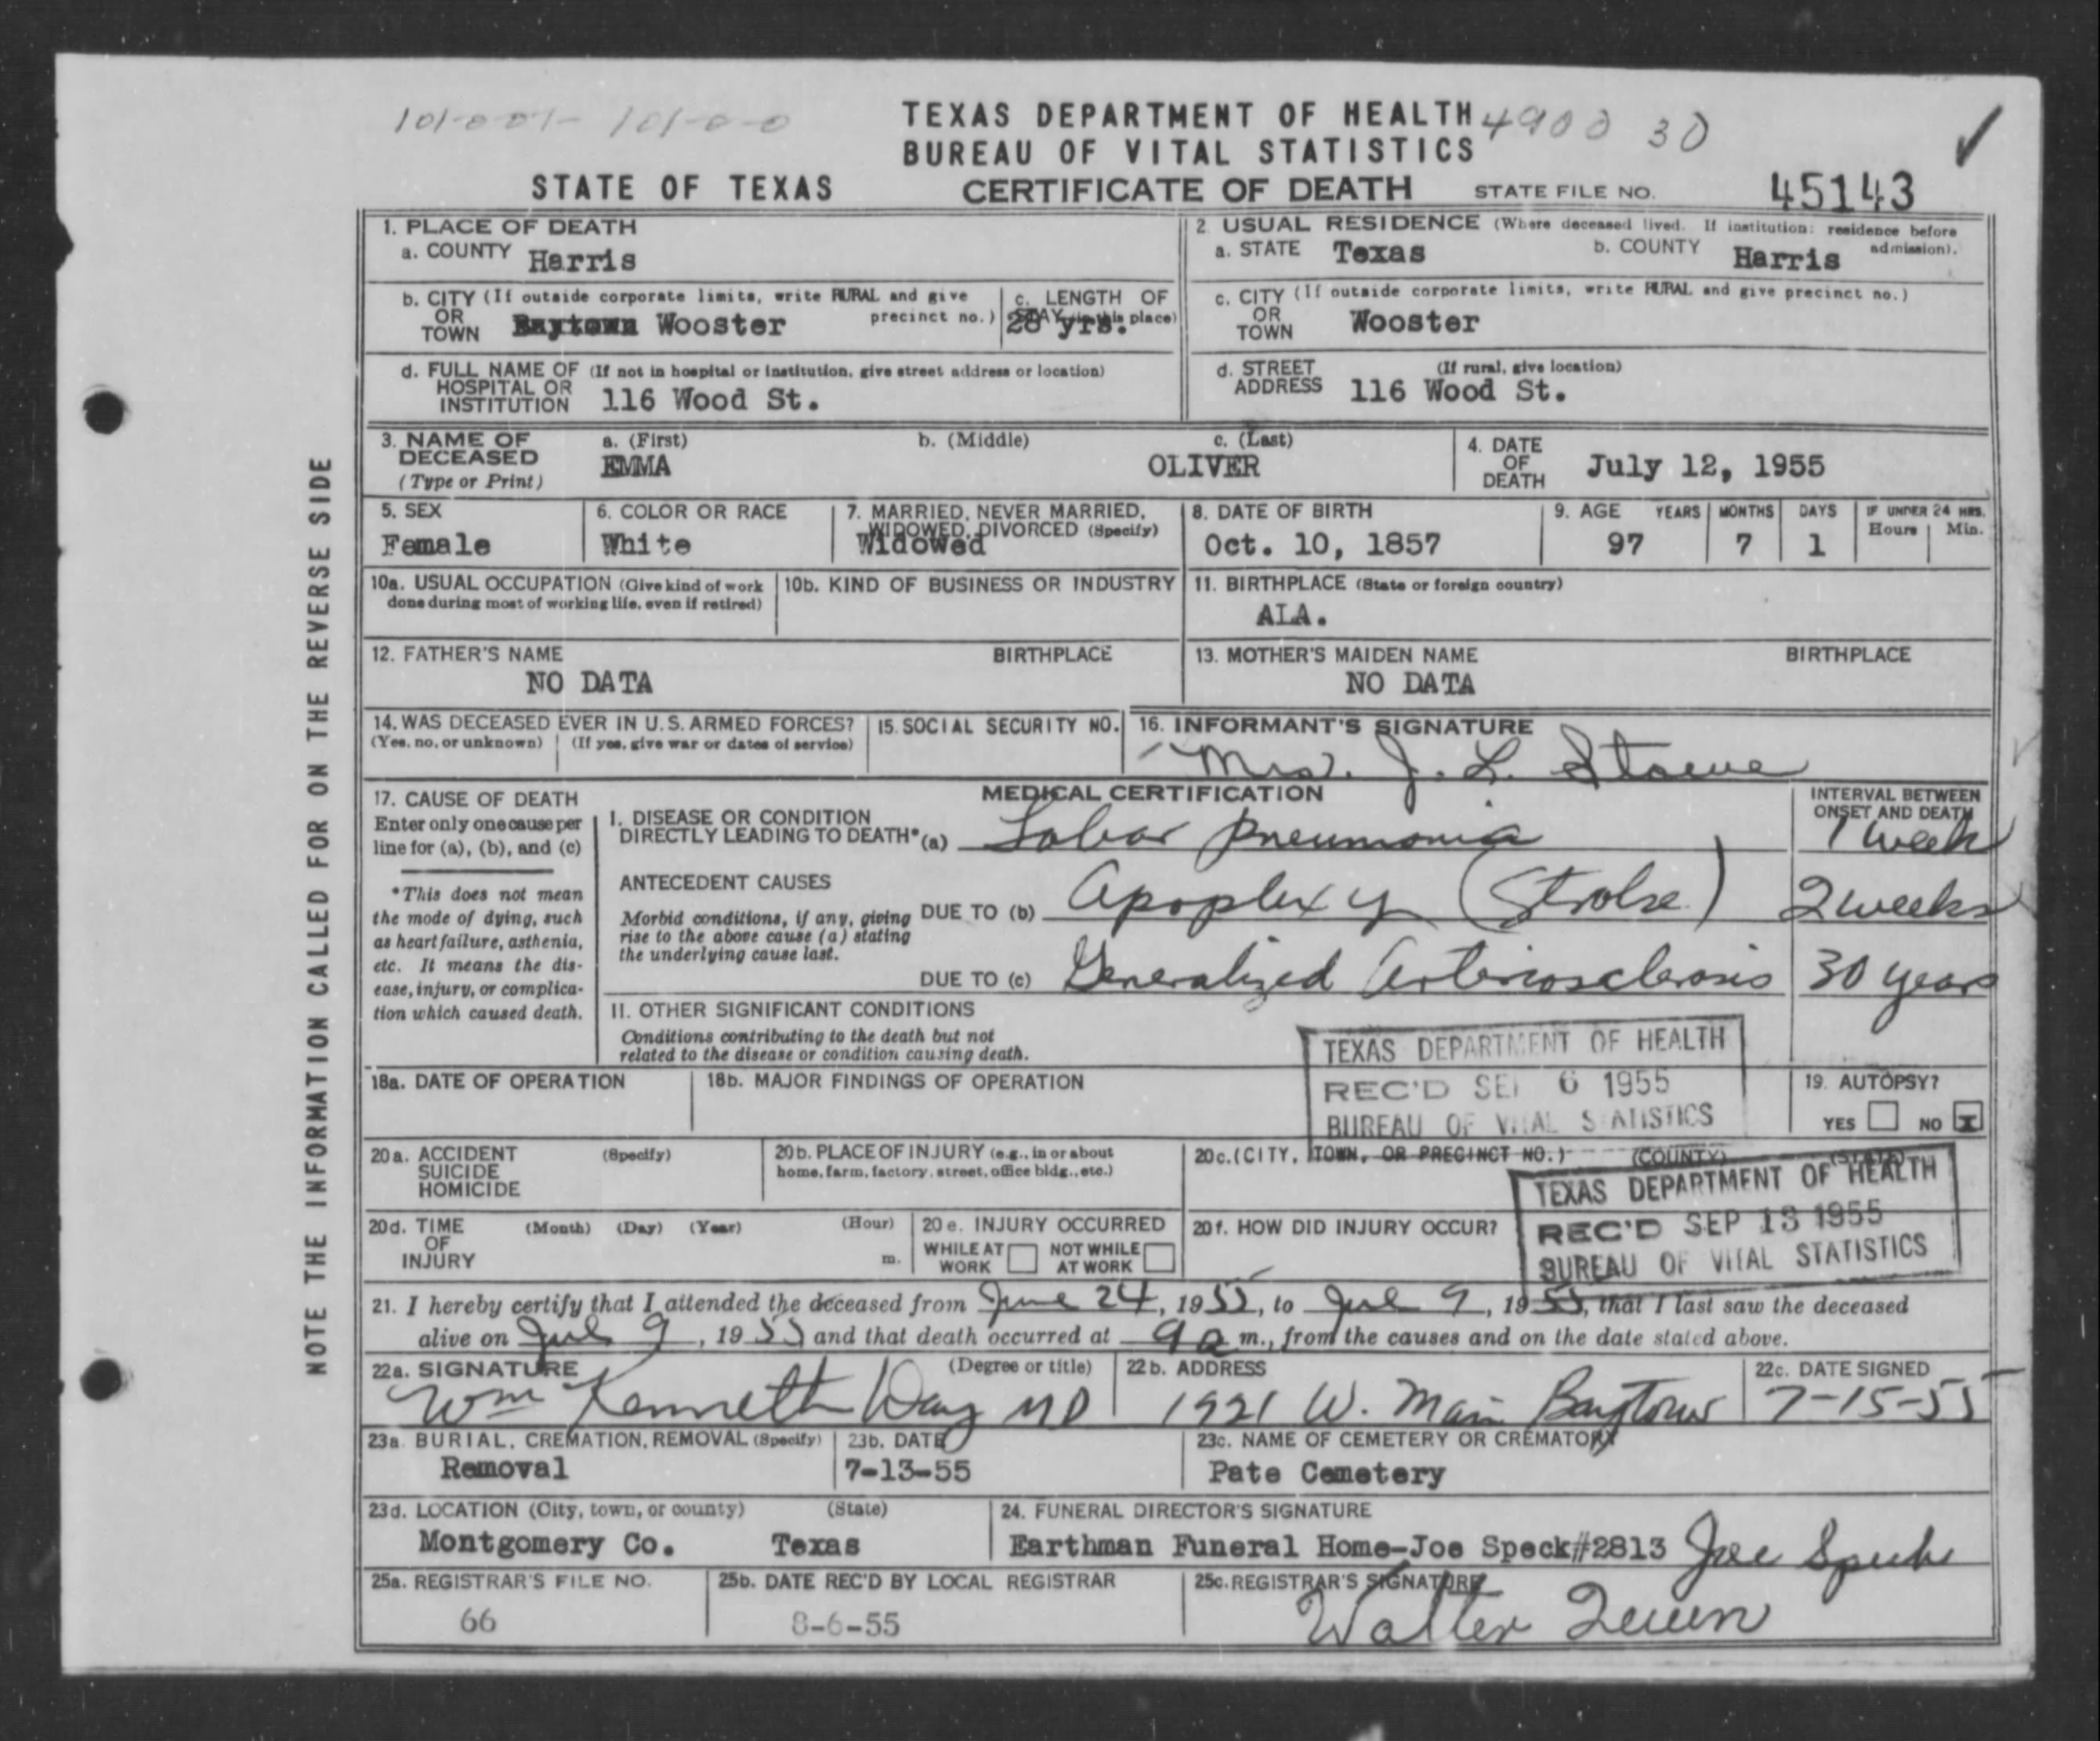 101-0-01- 101-0-0
TEXAS DEPARTMENT OF HEALTH 4900 30
BUREAU OF VITAL STATISTICS
STATE OF TEXAS CERTIFICATE OF DEATH STATE FILE NO. 45143
NOTE THE INFORMATION CALLED FOR ON THE REVERSE SIDE
1. PLACE OF DEATH
a. COUNTY Harris
2. USUAL RESIDENCE (Where deceased lived. If institution: residence before admission).
a. STATE Texas b. COUNTY Harris
b. CITY (If outside corporate limits, write RURAL and give precinct no.)
OR TOWN Baytown Wooster
c. LENGTH OF STAY (in this place) 28 yrs.
c. CITY (If outside corporate limits, write RURAL and give precinct no.)
OR TOWN Wooster
d. FULL NAME OF (If not in hospital or institution, give street address or location)
HOSPITAL OR INSTITUTION 116 Wood St.
d. STREET ADDRESS (If rural, give location)
116 Wood St.
3. NAME OF DECEASED (Type or Print)
a. (First) b. (Middle) c. (Last)
EMMA OLIVER
4. DATE OF DEATH July 12, 1955
5. SEX Female
6. COLOR OR RACE White
7. MARRIED, NEVER MARRIED, WIDOWED, DIVORCED (Specify) Widowed
8. DATE OF BIRTH Oct. 10, 1857
9. AGE YEARS MONTHS DAYS IF UNDER 24 HRS. Hours Min.
97 7 1
10a. USUAL OCCUPATION (Give kind of work done during most of working life, even if retired)
10b. KIND OF BUSINESS OR INDUSTRY
11. BIRTHPLACE (State or foreign country)
ALA.
12. FATHER'S NAME BIRTHPLACE
NO DATA
13. MOTHER'S MAIDEN NAME BIRTHPLACE
NO DATA
14. WAS DECEASED EVER IN U.S. ARMED FORCES?
(Yes, no, or unknown) (If yes, give war or dates of service)
15. SOCIAL SECURITY NO.
16. INFORMANT'S SIGNATURE
Mrs. J. L. Stowe
17. CAUSE OF DEATH
Enter only one cause per
line for (a), (b), and (c)
*This does not mean
the mode of dying, such
as heart failure, asthenia,
etc. It means the dis-
ease, injury, or complica-
tion which caused death.
MEDICAL CERTIFICATION
INTERVAL BETWEEN ONSET AND DEATH
I. DISEASE OR CONDITION
DIRECTLY LEADING TO DEATH* (a) Lobar pneumonia 1 week
ANTECEDENT CAUSES
Morbid conditions, if any, giving
rise to the above cause (a) stating
the underlying cause last.
DUE TO (b) Apoplexy (Stroke) 2 weeks
DUE TO (c) Generalized Arteriosclerosis 30 years
II. OTHER SIGNIFICANT CONDITIONS
Conditions contributing to the death but not
related to the disease or condition causing death.
TEXAS DEPARTMENT OF HEALTH
REC'D SEP 6 1955
BUREAU OF VITAL STATISTICS
18a. DATE OF OPERATION
18b. MAJOR FINDINGS OF OPERATION
19. AUTOPSY?
YES NO X
20a. ACCIDENT SUICIDE HOMICIDE (Specify)
20b. PLACE OF INJURY (e.g., in or about
home, farm, factory, street, office bldg., etc.)
20c. (CITY, TOWN, OR PRECINCT NO.) (COUNTY) (STATE)
TEXAS DEPARTMENT OF HEALTH
REC'D SEP 13 1955
BUREAU OF VITAL STATISTICS
20d. TIME OF INJURY (Month) (Day) (Year) (Hour) m.
20e. INJURY OCCURRED
WHILE AT WORK NOT WHILE AT WORK
20f. HOW DID INJURY OCCUR?
21. I hereby certify that I attended the deceased from June 24, 1955, to Jul 9, 1955, that I last saw the deceased
alive on Jul 9, 1955 and that death occurred at 9 a m., from the causes and on the date stated above.
22a. SIGNATURE (Degree or title)
Wm Kenneth Day MD
22b. ADDRESS
1921 W. Main Baytown
22c. DATE SIGNED
7-15-55
23a. BURIAL, CREMATION, REMOVAL (Specify)
Removal
23b. DATE
7-13-55
23c. NAME OF CEMETERY OR CREMATORY
Pate Cemetery
23d. LOCATION (City, town, or county) (State)
Montgomery Co. Texas
24. FUNERAL DIRECTOR'S SIGNATURE
Earthman Funeral Home-Joe Speck#2813 Joe Speck
25a. REGISTRAR'S FILE NO.
66
25b. DATE REC'D BY LOCAL REGISTRAR
8-6-55
25c. REGISTRAR'S SIGNATURE
Walter